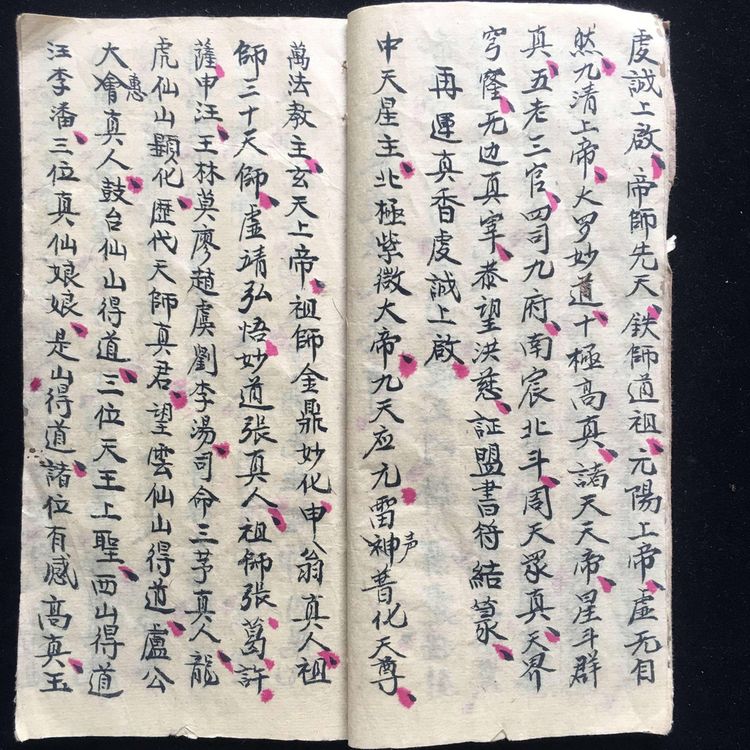 虔誠上啟、帝師先天、鉄師道祖、元陽上帝、虛无自
然、九清上帝、大罗妙道、十極高真、諸天天帝、星斗群
真、五老三官、四司九府、南宸北斗、周天眾真、天界
穹窿、无边真宰、恭望洪慈、証盟書符結篆、
再運真香虔誠上啟、
中天星主、北極紫微大帝、九天应元雷神声普化天尊、
萬法教主、玄天上帝、祖師金鼎妙化、申翁真人、祖
師三十天師、虛靖弘悟、妙道張真人、祖師張、葛許
薩、申汪王林莫廖趙虞劉李湯司命三茅真人、龍
虎仙山顕化、歷代天師真君、望雲仙山得道、盧公
大會惠真人、鼓台仙山得道、三位天王上聖、西山得道
汪李潘、三位真仙娘娘、是山得道、諸位有感高真、玉